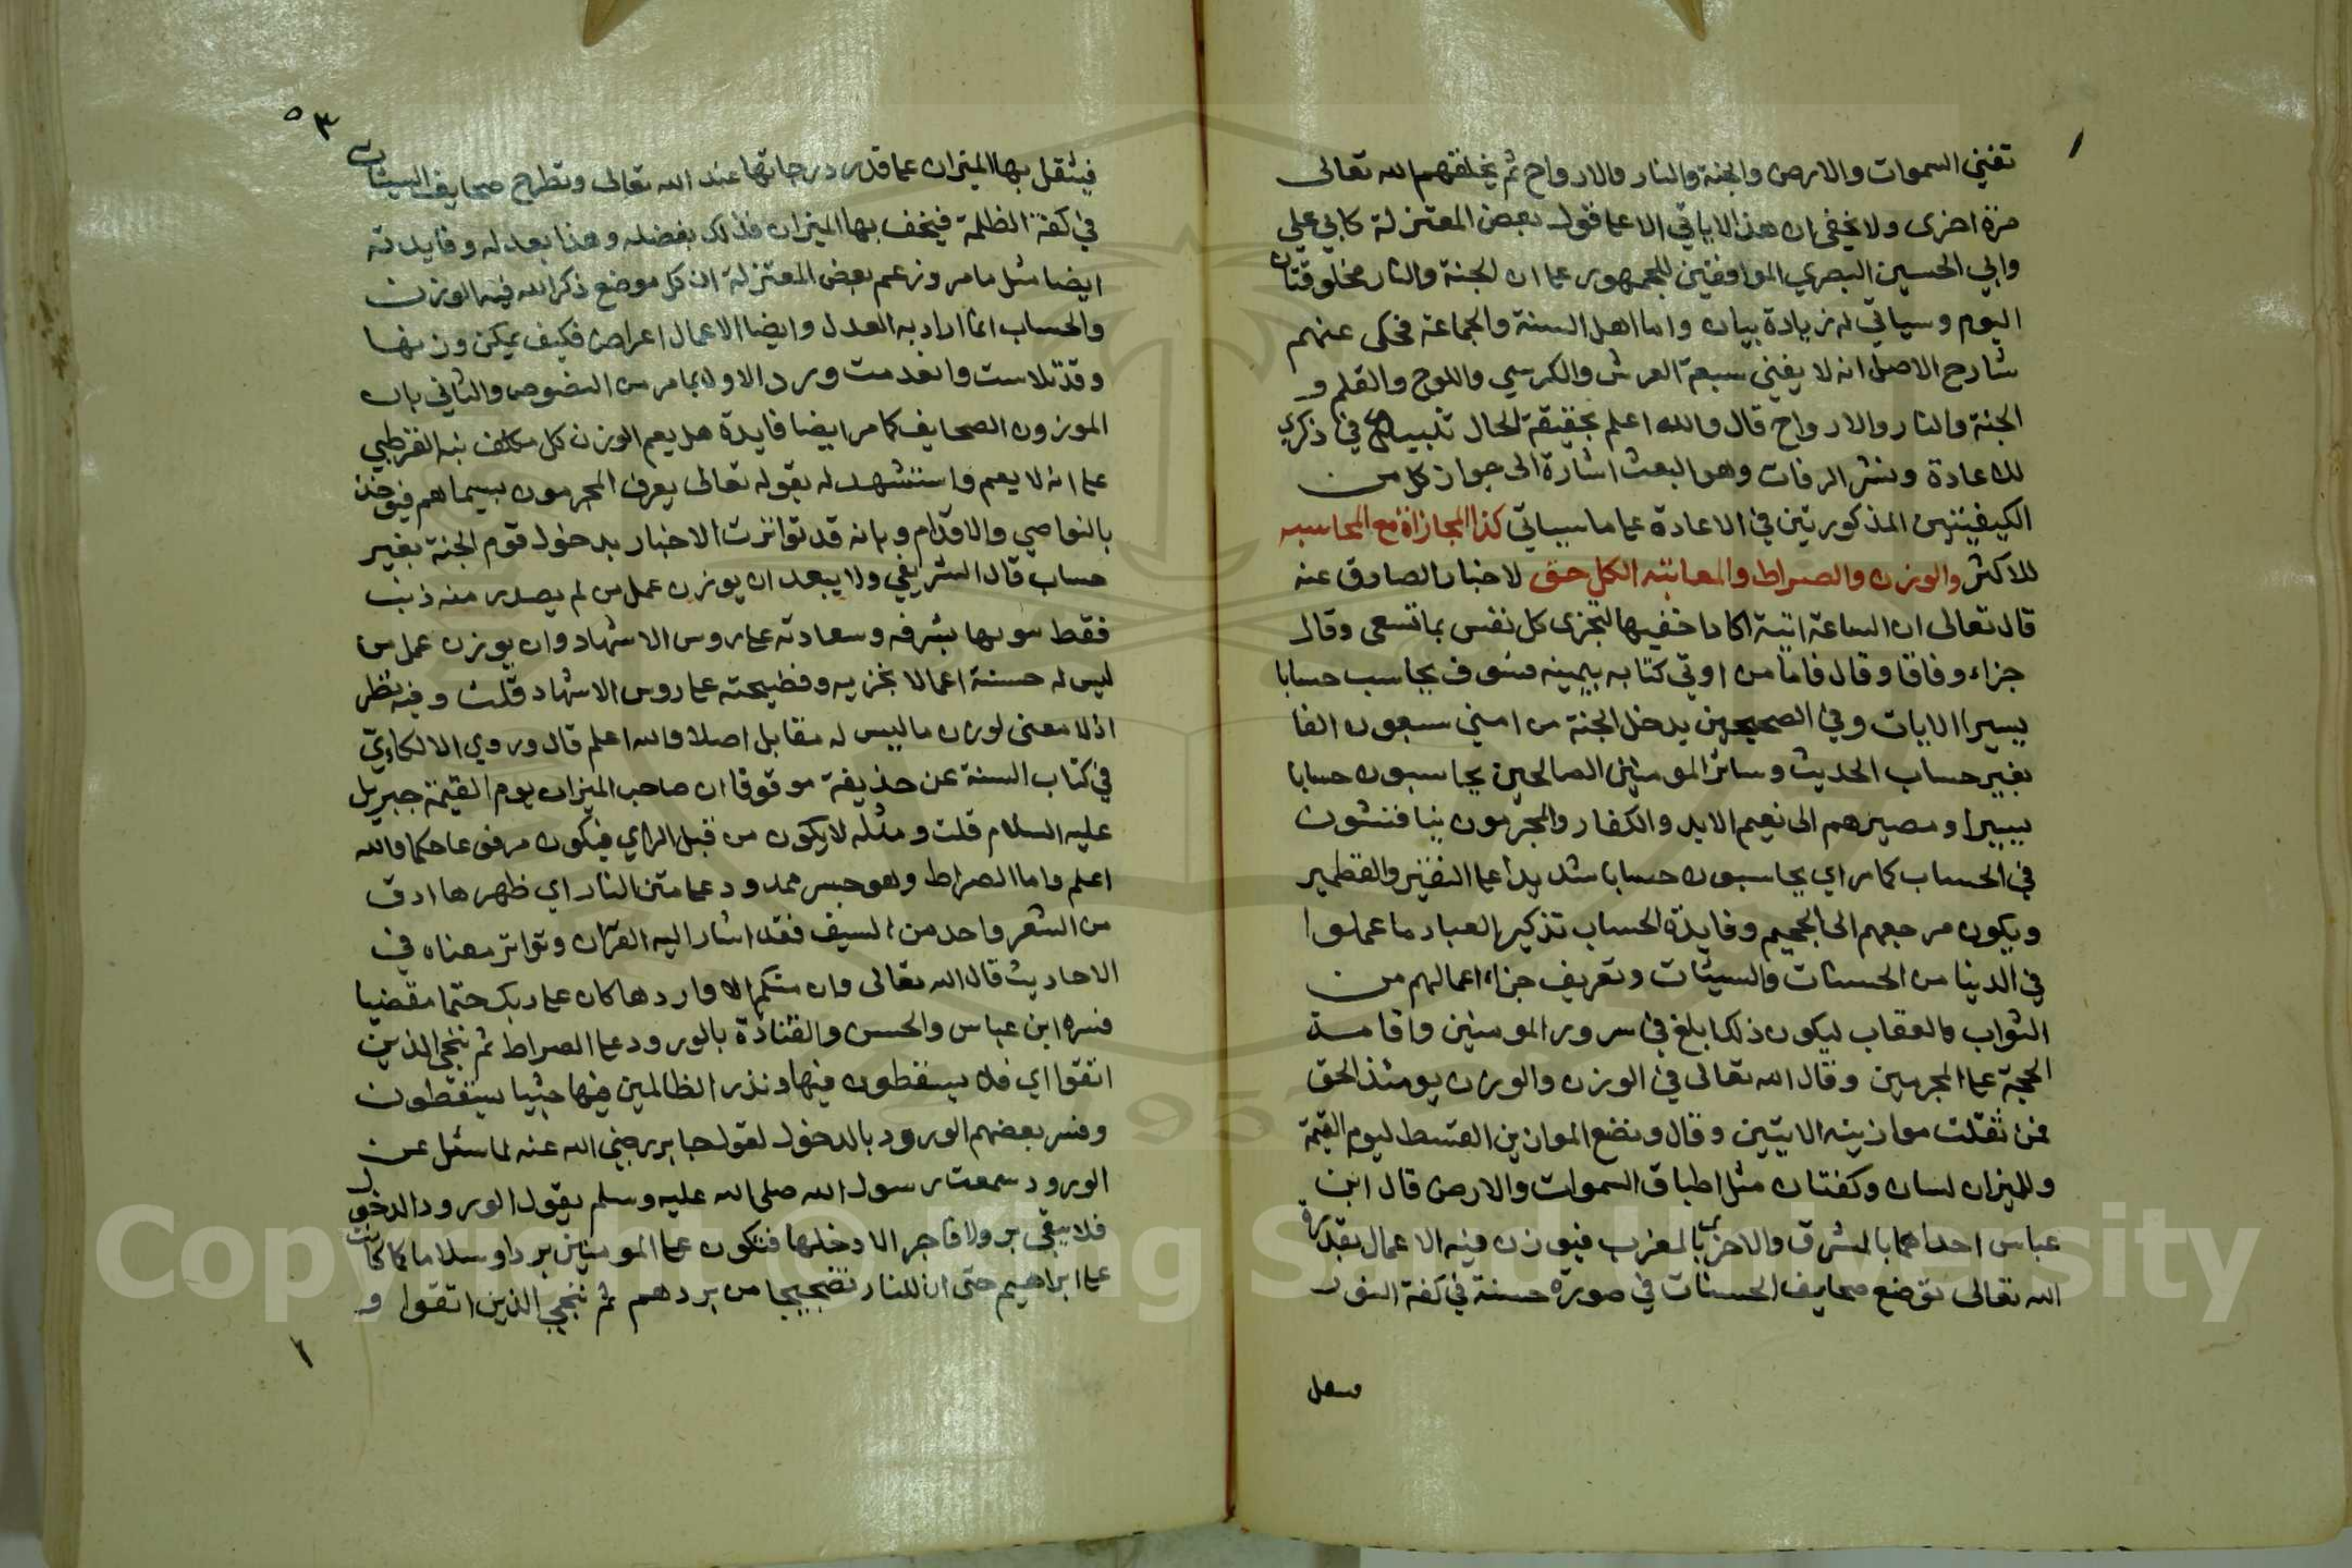 تفني السموات والارض والجنة والنار والارواح ثم يخلقهم الله تعالى
مرة اخرى ولا يخفى ان هذا لاياتي الا على قول بعض المعتزلة كابي علي
وابي الحسين البصري الموافقين للجمهور على ان الجنة والنار مخلوقتان
اليوم وسياتي له زيادة بيان واما اهل السنة والجماعة فحكى عنهم
شارح الاصل انه لا يفني سبعة العرش والكرسي واللوح والقلم و
الجنة والنار والارواح قال والله اعلم بحقيقة الحال تنبيه في ذكري
للاعادة ونشر الرفات وهو البعث اشارة الى جواز كل من
الكيفيتين المذكورتين في الاعادة على ما سياتي كذا المجازاة مع المحاسبه
للاكثر والوزن والصراط والمعانيه الكل حق لاخبار الصادق عنه
قال تعالى ان الساعة اتية اكاد اخفيها لتجزى كل نفس بما تسعى وقال
جزاء وفاقا وقال فاما من اوتي كتابه بيمينه فسوف يحاسب حسابا
يسيرا الايات وفي الصحيحين يدخل الجنة من امتي سبعون الفا
بغير حساب الحديث وسائر المومنين الصالحين يحاسبون حسابا
يسيرا ومصيرهم الى نعيم الابد والكفار والمجرمون يناقشون
في الحساب كما مر اي يحاسبون حسابا شديدا على النقير والقطمير
ويكون مرجعهم الى الجحيم وفايدة الحساب تذكير العباد ما عملوا
في الدنيا من الحسنات والسيئات وتعريف جزاء اعمالهم من
الثواب والعقاب ليكون ذلك ابلغ في سرور المومنين واقامة
الحجة على المجرمين وقال الله تعالى في الوزن والوزن يومئذ الحق
فمن ثقلت موازينه الايتين وقال ونضع الموازين القسط ليوم القيمة
وللميزان لسان وكفتان مثل اطباق السموات والارض قال ابن
عباس احداهما بالمشرق والاخرى بالمغرب فيوزن فيه الاعمال بقدرة
الله تعالى توضع صحايف الحسنات في صورة حسنة في كفة النور
٥٣
فيثقل بها الميزان على قدر درجاتها عند الله تعالى وتطرح صحايف السيئات
في كفة الظلمة فيخف بها الميزان فذلك بفضله وهذا بعدله وفايدته
ايضا مثل ما مر وزعم بعض المعتزلة ان كل موضع ذكر الله فيه الوزن
والحساب انما اراد به العدل وايضا الاعمال اعراض فكيف يمكن وزنها
وقد تلاشت وانعدمت ورد الاول بما مر من النصوص والثاني بان
الموزون الصحايف كما مر ايضا فايدة هل يعم الوزن كل مكلف نبه القرطبي
على انه لا يعم واستشهد له بقوله تعالى يعرف المجرمون بسيماهم فيوخذ
بالنواصي والاقدام وبانه قد تواترت الاخبار بدخول قوم الجنة بغير
حساب قال الشريفي ولا يبعد ان يوزن عمل من لم يصدر منه ذنب
فقط بشرفه وسعادته على روس الاشهاد وان يوزن عمل من
ليس له حسنة اعمالا بخزيه وفضيحته على روس الاشهاد قلت وفيه نظر
اذ لا معنى لوزن ما ليس له مقابل اصلا والله اعلم قال وروي الالكاوي
في كتاب السنة عن حذيفة موقوفا ان صاحب الميزان يوم القيمة جبريل
عليه السلام قلت ومثله لا يكون من قبل الراي فيكون مرفوعا حكما والله
اعلم واما الصراط وهو جسر ممدود على متن النار اي ظهرها ادق
من الشعر واحد من السيف فقد اشار اليه القران وتواتر معناه في
الاحاديث قال الله تعالى وان منكم الا واردها كان على ربك حتما مقضيا
فسره ابن عباس والحسن والقتادة بالورود على الصراط ثم ننجي الذين
اتقوا اي فلا يسقطون فيها ونذر الظالمين فيها جثيا يسقطون
وفسر بعضهم الورود بالدخول لقول جابر رضي الله عنه لما سئل عن
الورود سمعت رسول الله صلى الله عليه وسلم يقول الورود الدخول
فلا يبقى بر ولا فاجر الا دخلها فتكون على المومنين بردا وسلاما كما كانت
على ابراهيم حتى ان للنار ضجيجا من بردهم ثم ننجي الذين اتقوا و
Copyright © King Saud University